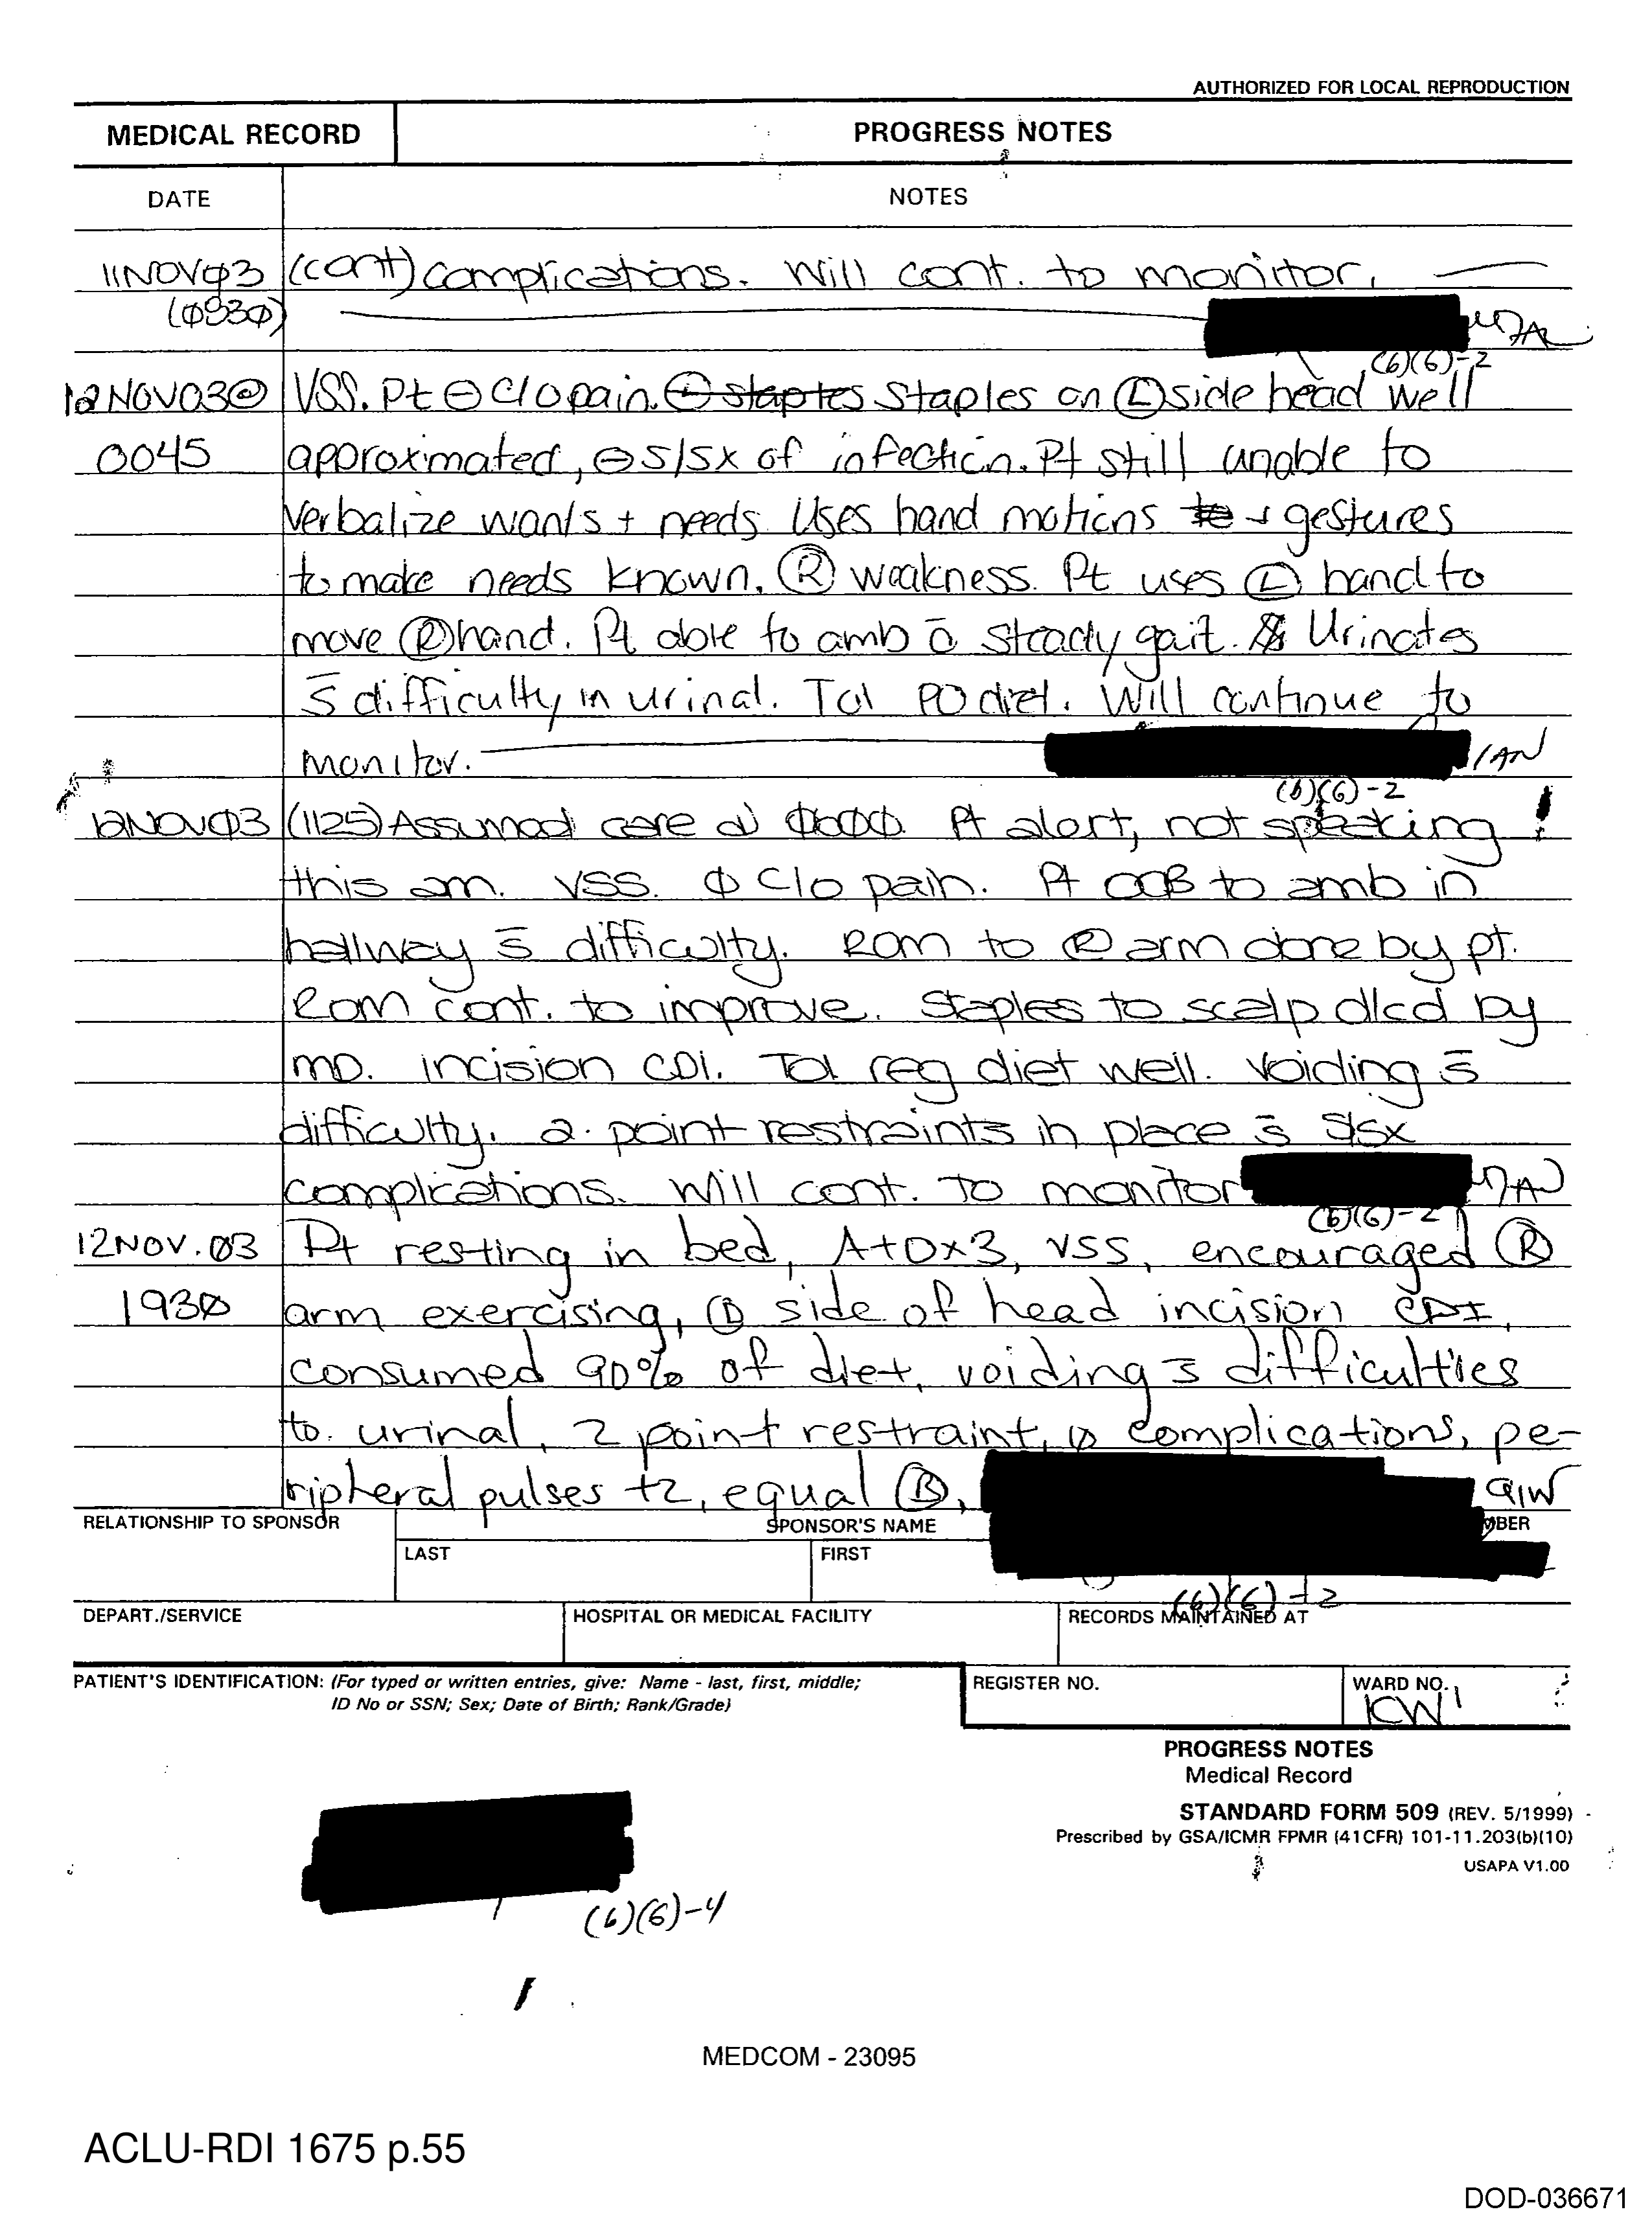 AUTHORIZED FOR LOCAL REPRODUCTION
MEDICAL RECORD PROGRESS NOTES
DATE NOTES
11NOVØ3 (cont) complications. Will cont. to monitor.
(Ø930)
(b)(6)-2
12NOV03@ VSS. Pt ⊖ C/o pain. Ⓛ staples Staples on Ⓛ side head well
0045 approximated, ⊖ s/sx of infection. Pt still unable to
verbalize wants + needs. Uses hand motions to + gestures
to make needs known. Ⓡ weakness. Pt uses Ⓛ hand to
move Ⓡ hand. Pt able to amb c̄ steady gait. Urinates
s̄ difficulty in urinal. Tol PO diet. Will continue to
monitor. /AN
(b)(6)-2
12NOVØ3 (1125) Assumed care @ Ø6ØØ. Pt alert, not speaking
this am. VSS. Ø C/o pain. Pt OOB to amb in
hallway s̄ difficulty. ROM to Ⓡ arm done by pt.
ROM cont. to improve. Staples to scalp d/cd by
MD. Incision CDI. Tol reg diet well. Voiding s̄
difficulty. 2-point restraints in place s̄ S/sx
complications. Will cont. to monitor
(b)(6)-2
12NOV.Ø3 Pt resting in bed, A+Ox3, VSS, encouraged Ⓡ
193Ø arm exercising, Ⓛ side of head incision CDI,
consumed 90% of diet, voiding s̄ difficulties
to urinal, 2 point restraint, Ø complications, pe-
ripheral pulses +2, equal Ⓑ,
RELATIONSHIP TO SPONSOR SPONSOR'S NAME
LAST FIRST
(b)(6)-2
DEPART./SERVICE HOSPITAL OR MEDICAL FACILITY RECORDS MAINTAINED AT
PATIENT'S IDENTIFICATION: (For typed or written entries, give: Name - last, first, middle; REGISTER NO. WARD NO.
ID No or SSN; Sex; Date of Birth; Rank/Grade) ICW1
PROGRESS NOTES
Medical Record
STANDARD FORM 509 (REV. 5/1999)
Prescribed by GSA/ICMR FPMR (41CFR) 101-11.203(b)(10)
USAPA V1.00
(b)(6)-4
MEDCOM - 23095
ACLU-RDI 1675 p.55
DOD-036671